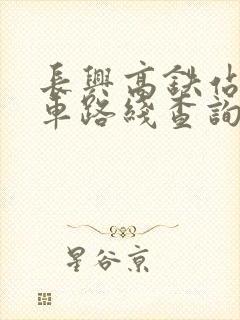 長興高鉄佔
車路綫查詢
星谷京